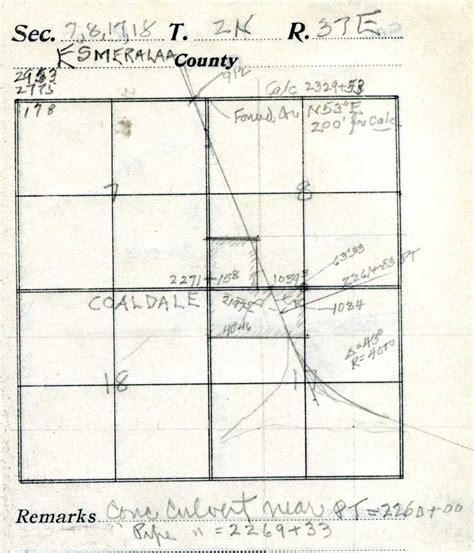 Sec. 7,8,17,18 T. 2N R. 37E
ESMERALDA County
2953
2775
178
912
Calc 2329+53
Found, Cor N53°E
200' fr Calc
7
8
63°33'
2261+53 PT
2271+158
1039
COALDALE
1034
4046
Δ=
R=4000
18
17
Remarks Conc culvert near PT=2260+00
Pipe " =2269+33